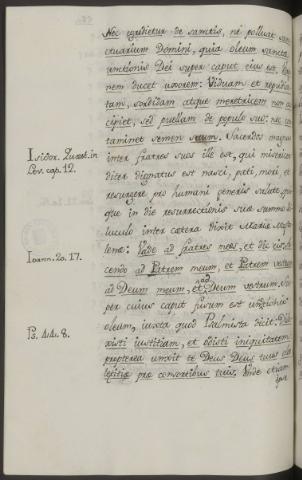 Nec egredietur de sanctis, ne polluat san-
ctuarium Domini, quia oleum sanctæ
unctionis Dei super caput eius est.
nem ducet uxorem: Viduam et repudia-
tam, sordidam atque meretricem non ac-
cipiet, sed puellam de populo suo: ne con-
taminet semen suum. Sacerdos magnus
Isidor. Quæst. in
Lev. cap. 12.
inter fratres suos ille est, qui misericor-
diter dignatus est nasci, pati, mori, et
resurgere pro humani generis salute,
que in die resurrectionis suæ summo di-
luculo inter cætera dixit Mariæ Magda-
Ioann. 20. 17.
lenæ: Vade ad fratres meos, et dic eis:
cendo ad Patrem meum, et Patrem vestrum
ad Deum meum, et Deum vestrum.
ad
per cuius caput fusum est unctionis
oleum, iuxta quod Psalmista dicit: Dile-
Ps. 44. 8.
xisti iustitiam, et odisti iniquitatem
propterea unxit te Deus Deus tuus oleo
lætitiæ præ consortibus tuis. Unde etiam